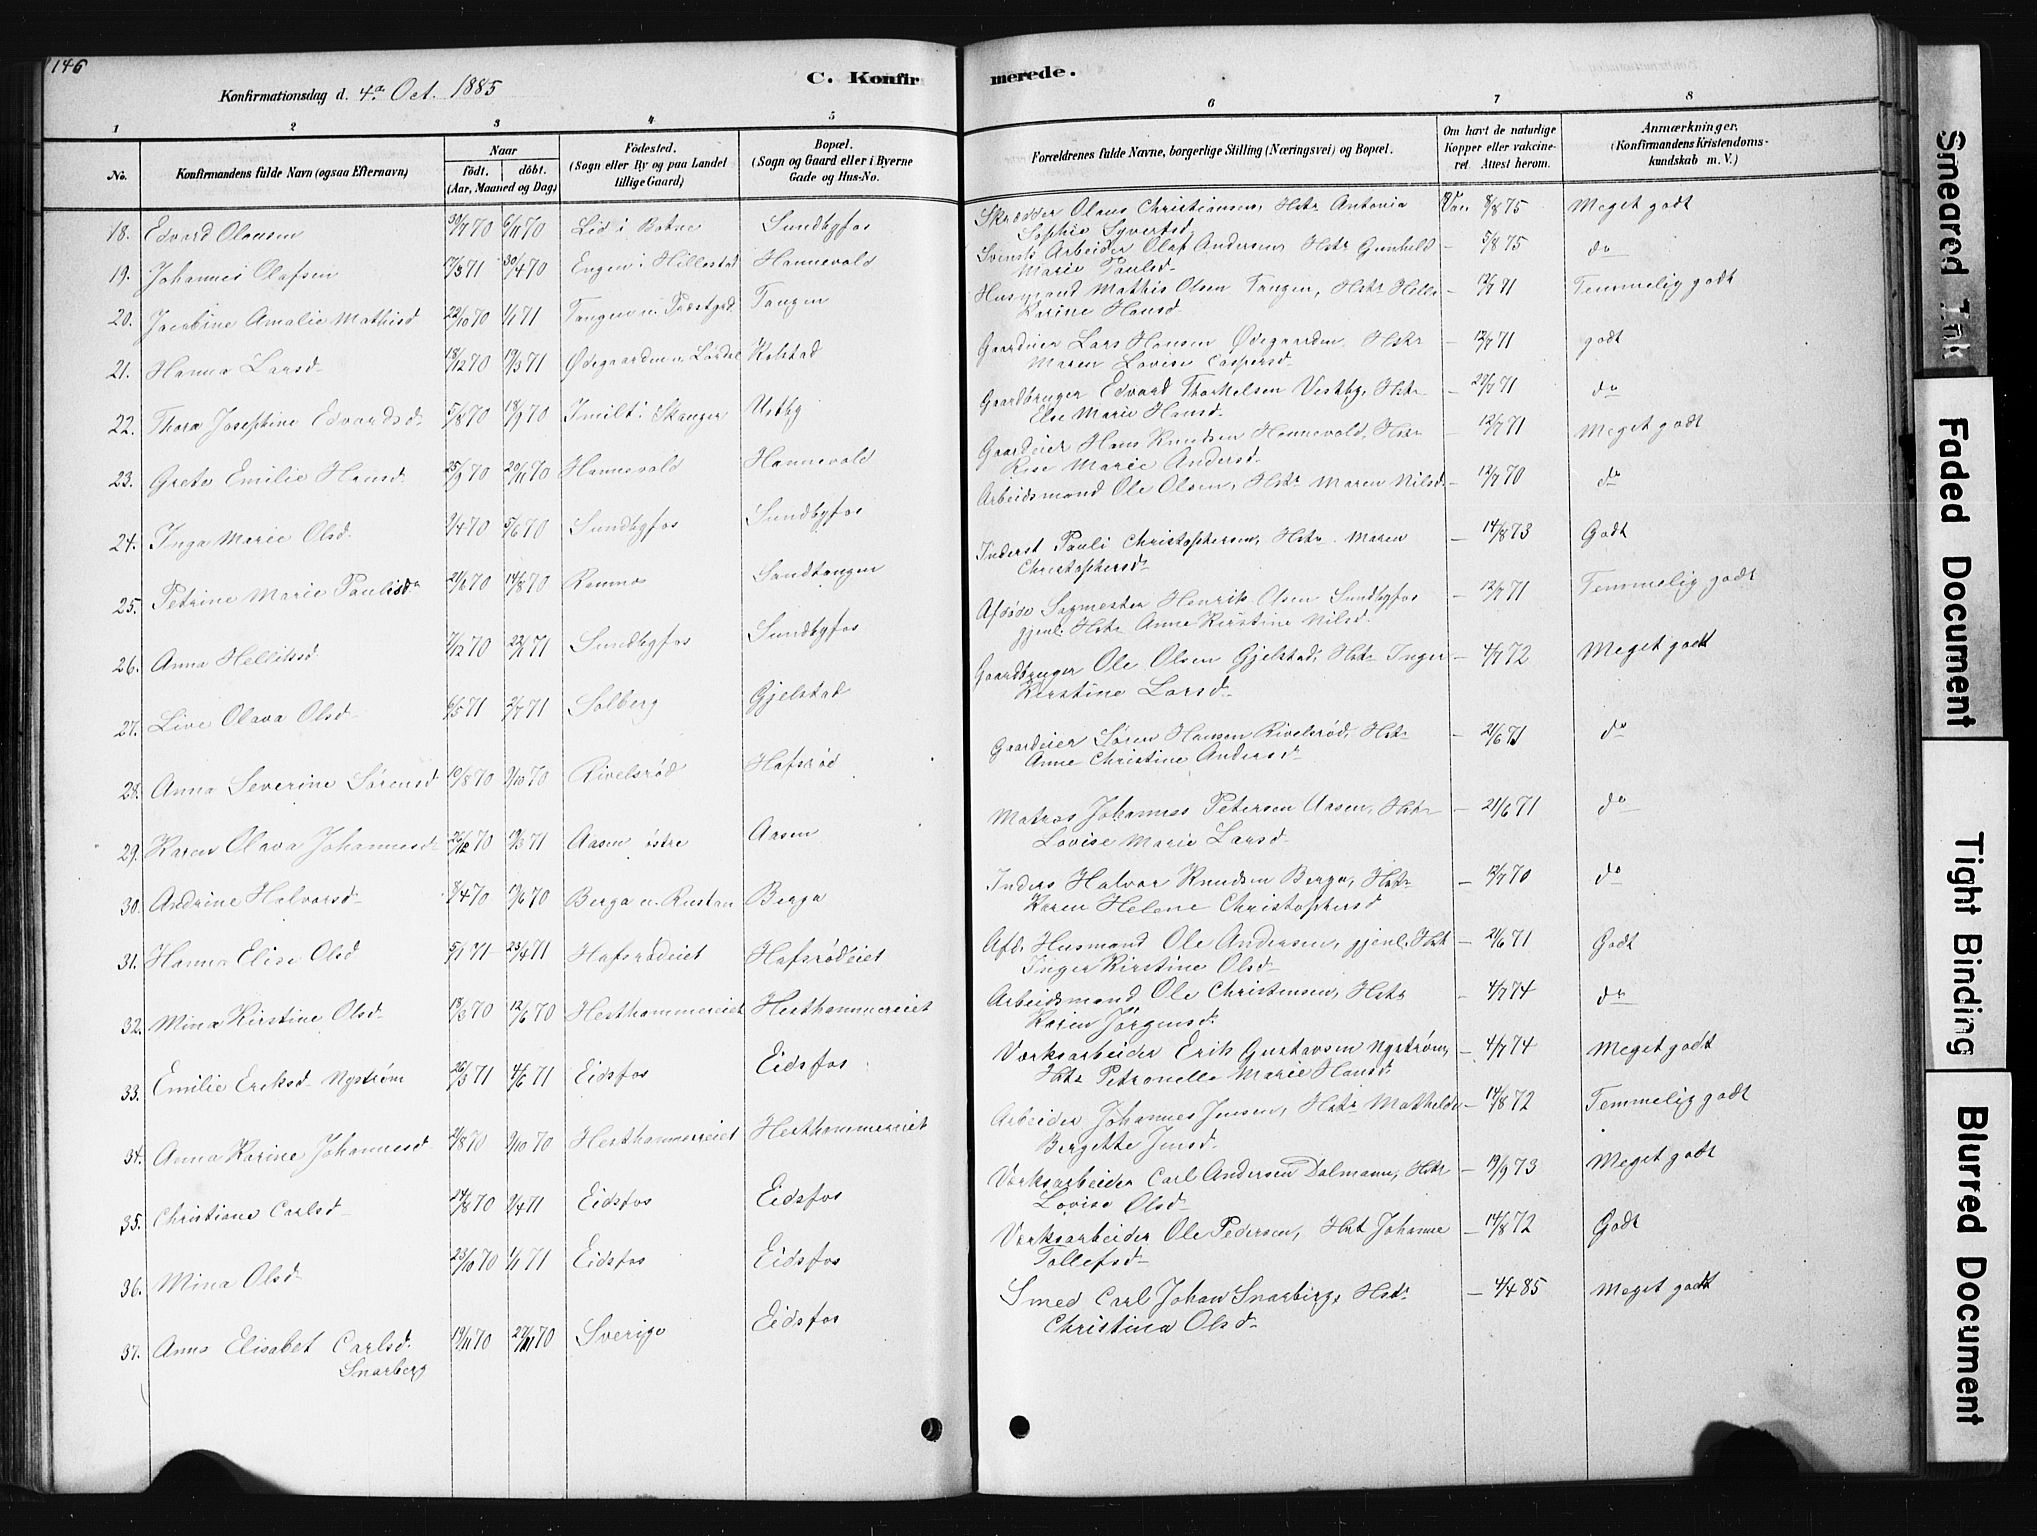 146
Konfirmationsdag d. 4de Oct. 1885
C. Konfirmerede.
1 2 3 4 5 6 7 8
No.
Konfirmandens fulde Navn (ogsaa Efternavn)
Naar
födt. döbt.
(Aar, Maaned og Dag)
Födested.
(Sogn eller By og paa Landet
tillige Gaard)
Bopæl.
(Sogn og Gaard eller i Byerne
Gade og Hus-No.
Forældrenes fulde Navne, borgerlige Stilling (Næringsvei) og Bopæl.
Om havt de naturlige
Kopper eller vakcine-
ret Attest herom.
Anmærkninger.
(Konfirmandens Kristendoms-
kundskab m. V.)
18. Edvard Olausen 30/7 70 6/11 70 Lid i Botne Sundbyfos Skrædder Olaus Christiansen, Hstr Antonia Vac 8/8 75 Meget godt
Sophie Syvertsd.
19. Johannes Olafsen 17/3 71 30/4 70 Engen i Hillestad Hannevold Svensk Arbeider Olaf Andersen Hstr Gunhild – 5/8 75 do
Marie Paulsd.
20. Jacobine Amalie Mathisd 22/10 70 1/1 71 Tangen u. Præstgrd Tangen Husmand Mathis Olsen Tangen, Hstr Helle – 12/7 71 Temmelig godt
Karine Hansd.
21. Hanna Larsd. 18/12 70 19/3 71 Ødegaarden u. Lørdal Kolstad Gaardeier Lars Hansen Ødegaarden Hstr – 12/7 71 godt
Maren Lovise Caspersd.
22. Thora Josephine Edvardsd. 5/8 70 18/9 70 Imilt i Skauger Vestby Gaardbruger Edvard Thorkelsen Vestby, Hstr – 27/7 71 do
Else Marie Hansd.
23. Grete Emilie Hansd. 25/9 70 20/11 70 Hannevold Hannevold Gaardeier Hans Knudsen Hannevold, Hstr – 12/7 71 Meget godt
Rise Marie Andersd.
24. Inga Marie Olsd. 9/4 70 5/6 70 Sundbyfos Sundbyfos Arbeidsmand Ole Olsen, Hstr Maren Nilsd. – 12/7 70 do
25. Petrine Marie Paulisd. 21/6 70 14/8 70 Ramnes Sandtangen Inderst Pauli Christophersen, Hstr Maren – 14/8 73 Godt
Christophersd.
26. Anna Helliksd 7/12 70 22/1 71 Sundbyfos Sundbyfos Afdøde Sagmester Henrik Olsen Sundbyfos – 12/7 71 Temmelig godt
gjenl. Hstr Anne Kirstine Nilsd.
27. Live Olava Olsd. 6/5 71 2/7 71 Solberg Gjelstad Gaardbruger Ole Olsen Gjelstad, Hstr Inger – 4/7 72 Meget godt
Kirstine Larsd.
28. Anna Severine Sørensd 19/8 70 9/10 70 Rivelsrød Hafsrød Gaardeier Søren Hansen Rivelsrød, Hstr – 21/6 71 do
Anne Christine Andersd.
29. Karen Olava Johannesd. 26/12 70 19/3 71 Aasen østre Aasen Matros Johannes Petersen Aasen, Hstr – 21/6 71 do
Lovise Marie Larsd.
30. Andrine Halvorsd. 8/4 70 19/6 70 Berga u. Rustan Berga Inders Halvor Knudsen Berga, Hstr – 12/7 70 do
Karen Helene Christophersd
31. Hanna Elise Olsd 5/1 71 23/4 71 Hafsrødeiet Hafsrødeiet Afd. Husmand Ole Andersen, gjenl. Hstr – 21/6 71 Godt
Inger Kirstine Olsd.
32. Mina Kirstine Olsd. 18/3 70 12/6 70 Hesthammereiet Hesthammereiet Arbeidsmand Ole Christensen, Hstr – 4/7 74 do
Karen Jørgensd.
33. Emilie Eriksd. Nystrøm 26/3 71 4/6 71 Eidsfos Eidsfos Værksarbeider Erik Gustavsen Nystrøm, – 4/7 74 Meget godt
Hstr Petronelle Marie Hansd.
34. Anna Karine Johannesd 2/8 70 9/10 70 Hesthammereiet Hesthammereiet Arbeider Johannes Jensen, Hstr Mathilde – 14/8 72 Temmelig godt
Bergette Jensd.
35. Christiane Carlsd. 24/8 70 9/4 71 Eidsfos Eidsfos Værksarbeider Carl Andersen Dalmann, Hstr – 19/9 73 Meget godt
Lovise Olsd.
36. Mina Olsd. 23/10 70 1/1 71 Eidsfos Eidsfos Værksarbeider Ole Pedersen, Hst Johanne – 14/8 72 Godt
Tollefsd.
37. Anna Elisabet Carlsd. 19/11 70 27/11 70 Sverige Eidsfos Smed Carl Johan Snarberg, Hstr – 4/4 85 Meget godt
Snarberg Christina Olsd.
Smeared Ink
Faded Document
Tight Binding
Blurred Document